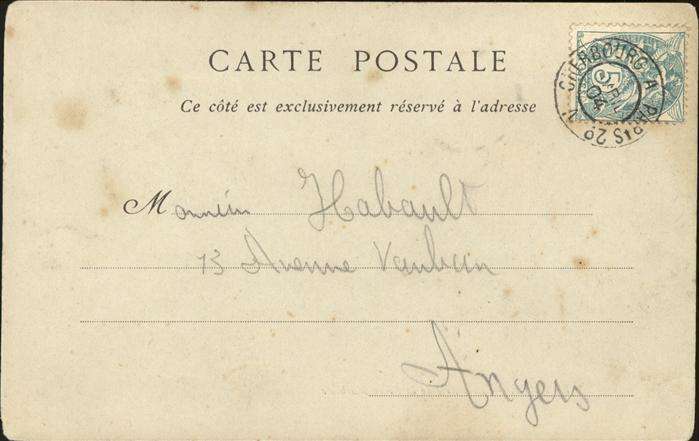 CARTE POSTALE
Ce côté est exclusivement réservé à l'adresse
CHERBOURG A PARIS 2º
5
04
Monsieur Habault
13 Avenue Vauban
Angers